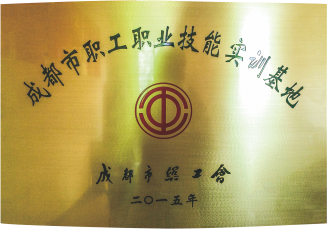 成都市职工职业技能实训基地
成都市總工會
二〇一五年